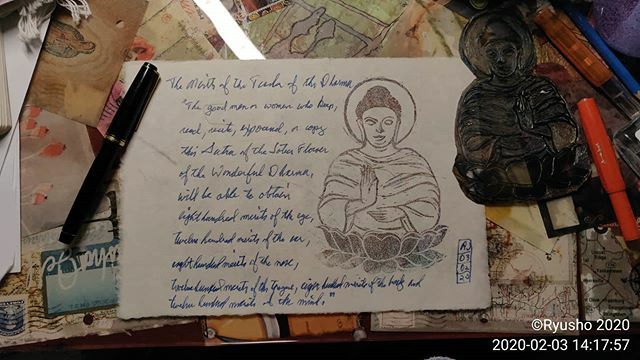 The Merits of the Teacher of the Dharma
"The good men or women who keep,
read, recite, expound, or copy
this Sutra of the Lotus Flower
of the Wonderful Dharma,
will be able to obtain
eight hundred merits of the eye,
twelve hundred merits of the ear,
eight hundred merits of the nose,
twelve hundred merits of the tongue, eight hundred merits of the body and
twelve hundred merits of the mind."
R.
03
02
20
©Ryusho 2020
2020-02-03 14:17:57